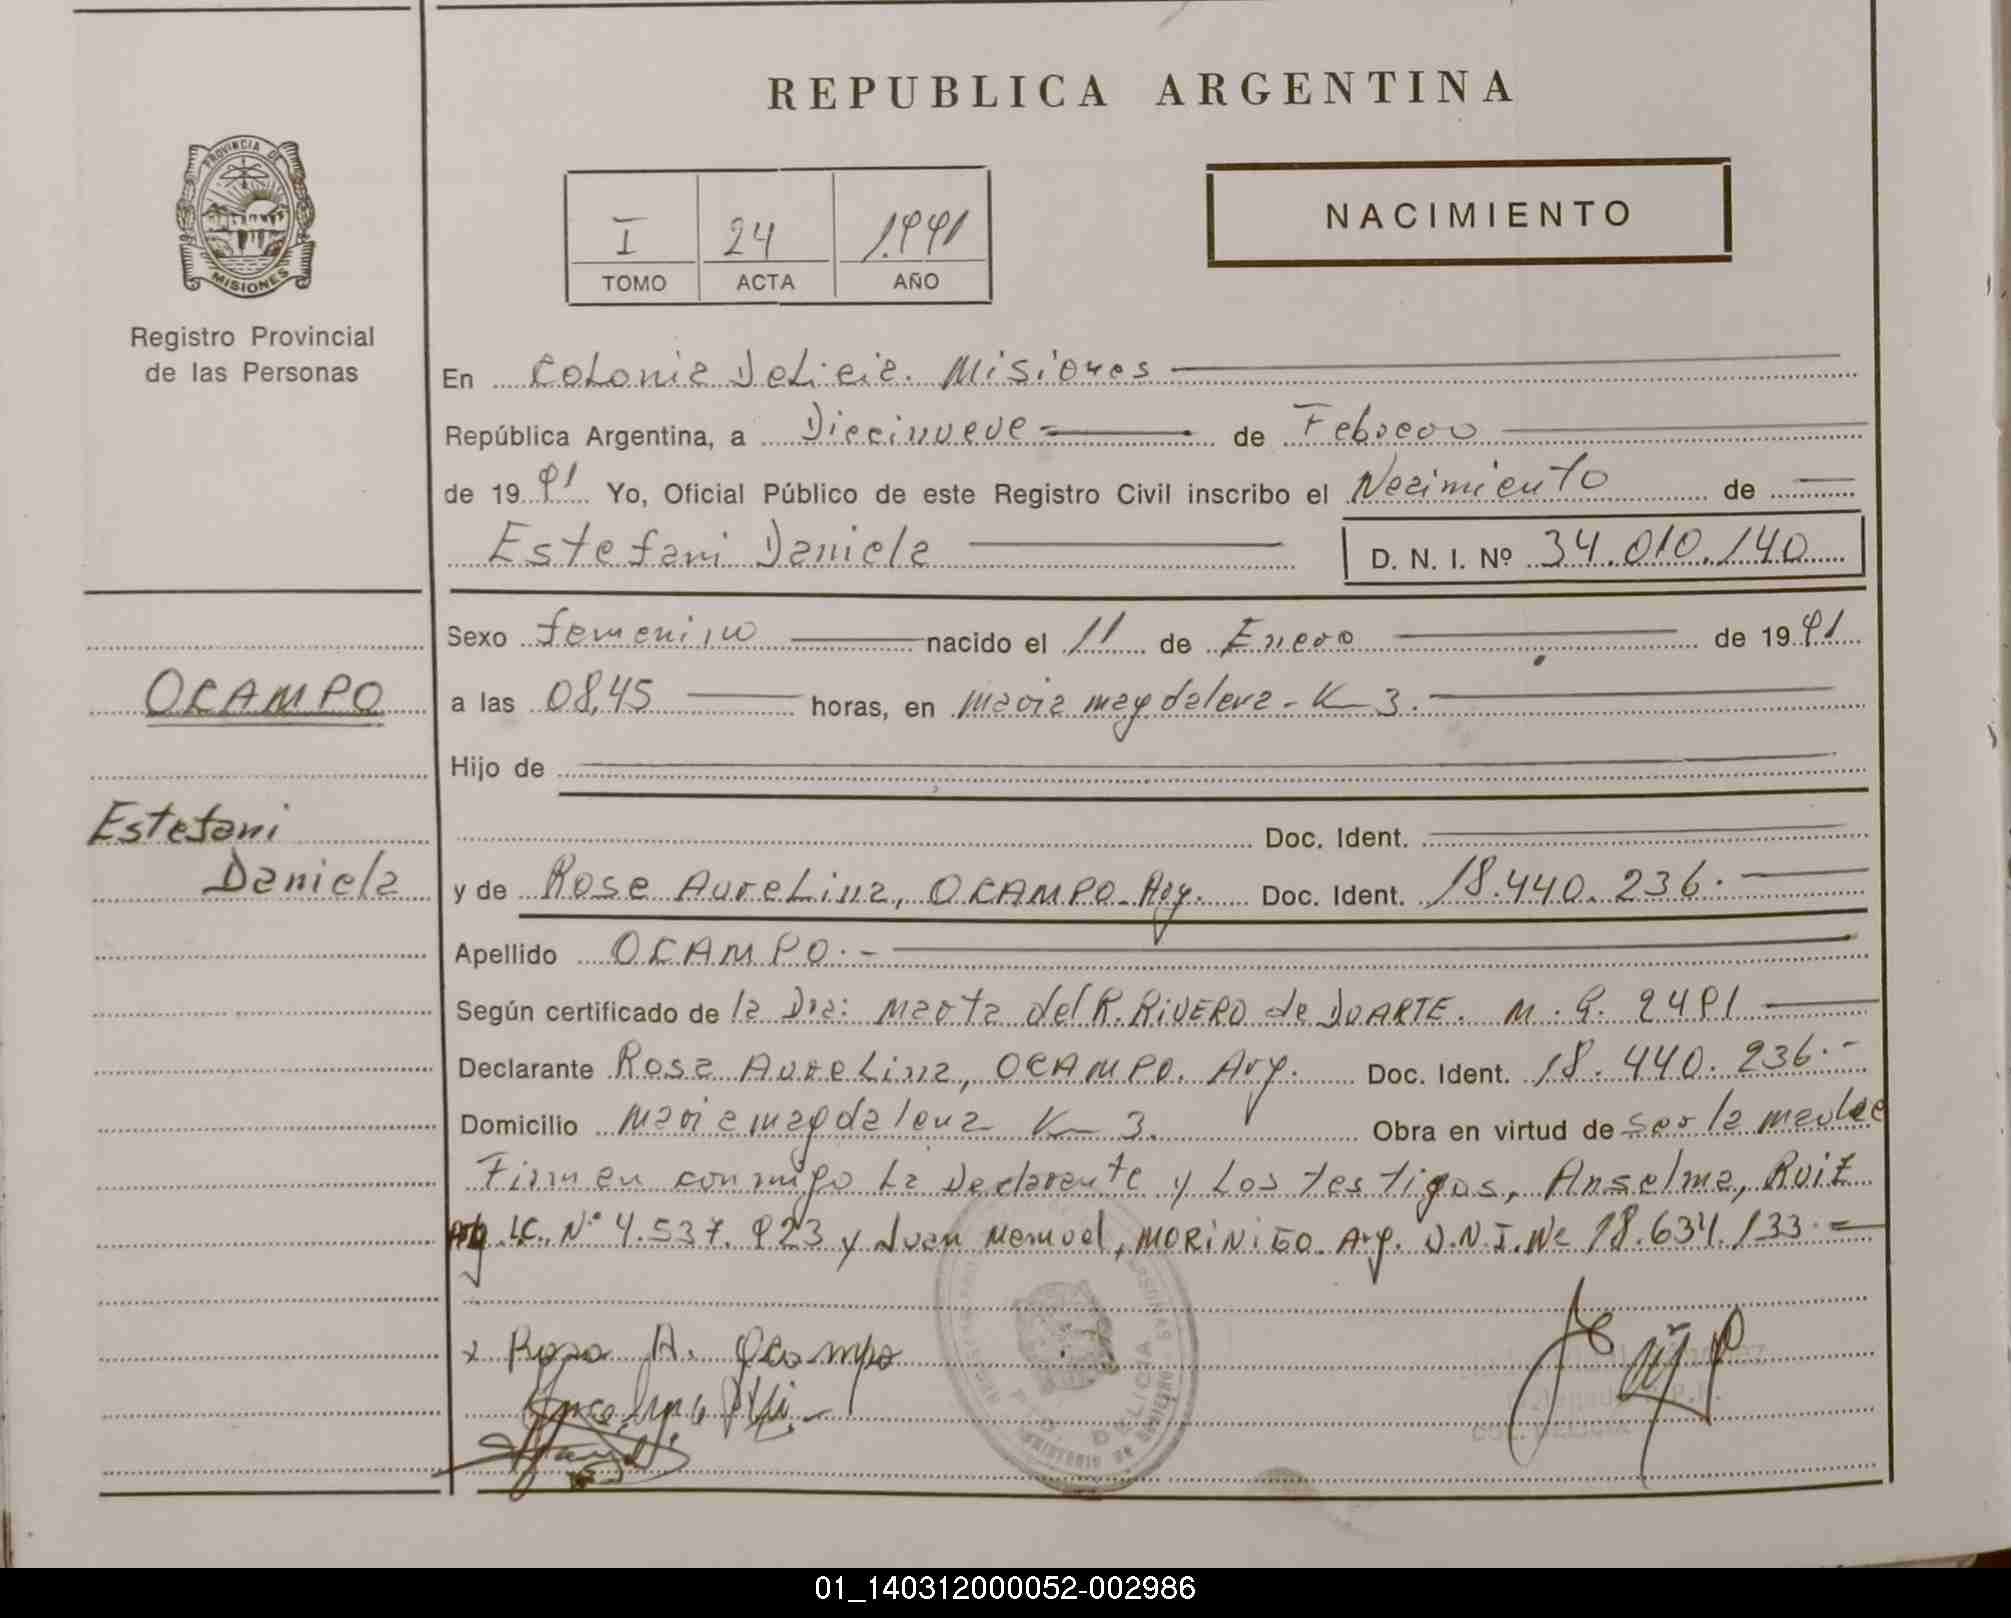 REPUBLICA ARGENTINA
PROVINCIA DE
MISIONES
Registro Provincial
de las Personas
I 24 1.991
TOMO ACTA AÑO
NACIMIENTO
En Colonia Delicia. Misiones
República Argentina, a Diecinueve de Febrero
de 19 91 Yo, Oficial Público de este Registro Civil inscribo el Nacimiento de
Estefani Daniela D. N. I. Nº 34.010.140
Sexo femenino nacido el 11 de Enero de 19 91
OCAMPO
a las 08,45 horas, en maria magdalena - K 3.
Hijo de
Estefani
Daniela
Doc. Ident.
y de Rosa Aurelina, OCAMPO. Arg. Doc. Ident. 18.440.236.
Apellido OCAMPO.-
Según certificado de la Dra: marta del R. RIVERO de DUARTE. M. 2491
Declarante Rosa Aurelina, OCAMPO. Arg. Doc. Ident. 18.440.236.-
Domicilio maria magdalena K 3. Obra en virtud de ser la madre
Firman conmigo La Declarante y Los testigos, Anselma, RUIZ
Arg. LC. Nº 4.537.923 y Juan Manuel, MORINIGO. Arg. D.N.I. Nº 18.634.133.=
x Rosa A. Ocampo
DELICIA
01_140312000052-002986